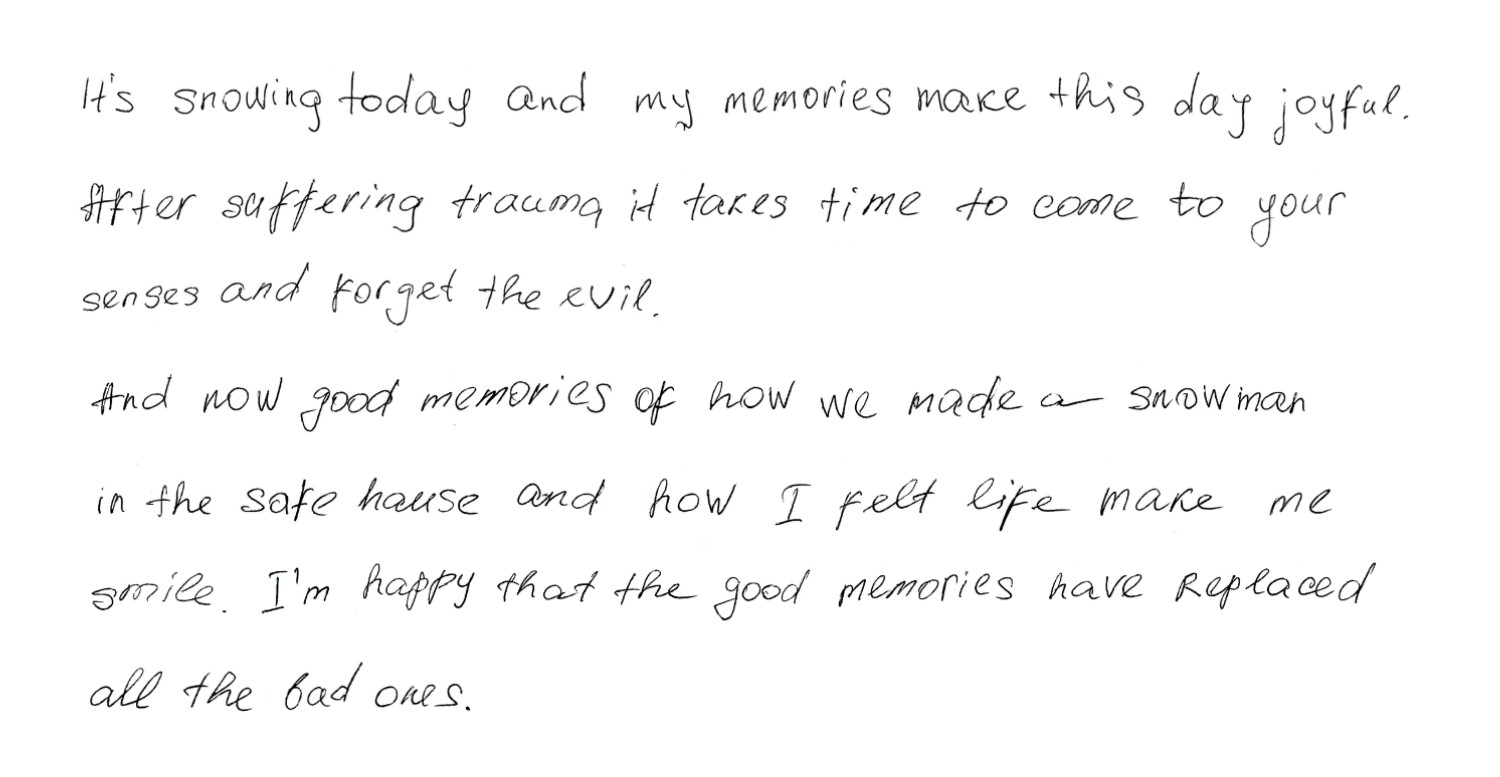 It's snowing today and my memories make this day joyful.
After suffering trauma it takes time to come to your
senses and forget the evil.
And now good memories of how we made a snowman
in the safe hause and how I felt life make me
smile. I'm happy that the good memories have Replaced
all the bad ones.